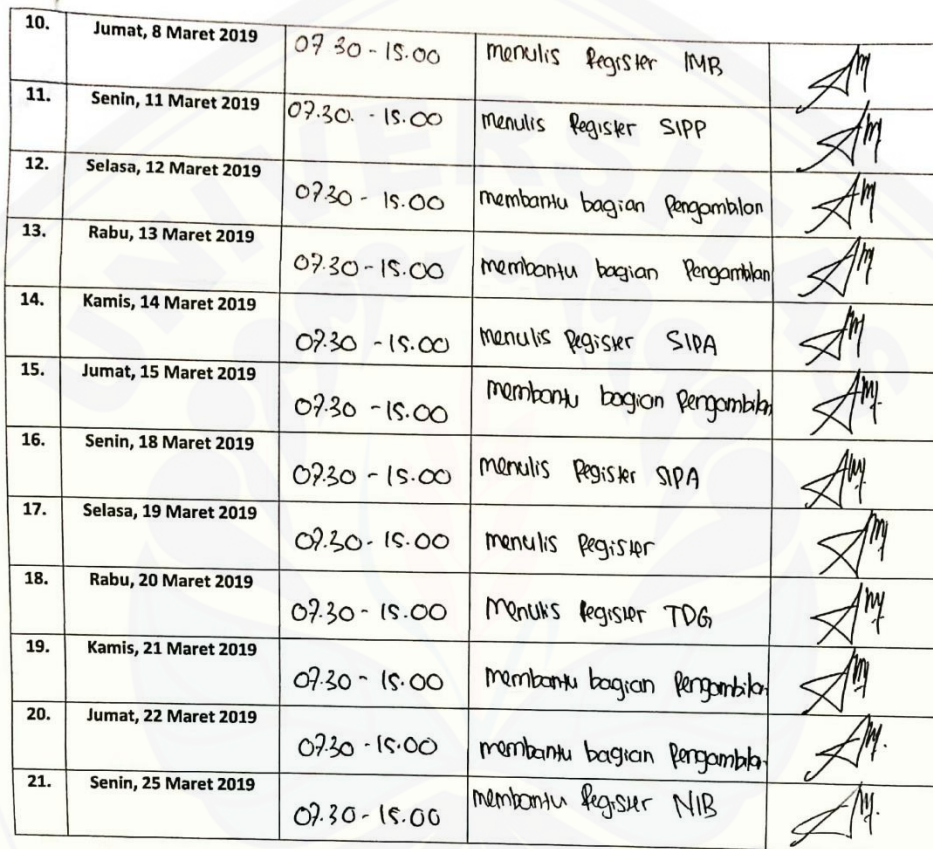 UNIVERSITAS
10. Jumat, 8 Maret 2019 07 30 - 15.00 menulis Register IMB
11. Senin, 11 Maret 2019 07.30. - 15.00 menulis Register SIPP
12. Selasa, 12 Maret 2019 07.30 - 15.00 membantu bagian Pengambilan
13. Rabu, 13 Maret 2019 07.30 - 15.00 membantu bagian Pengambilan
14. Kamis, 14 Maret 2019 07.30 - 15.00 menulis Register SIPA
15. Jumat, 15 Maret 2019 07.30 - 15.00 membantu bagian Pengambilan
16. Senin, 18 Maret 2019 07.30 - 15.00 menulis Register SIPA
17. Selasa, 19 Maret 2019 07.30 - 15.00 menulis Register
18. Rabu, 20 Maret 2019 07.30 - 15.00 Menulis Register TDG
19. Kamis, 21 Maret 2019 07.30 - 15.00 membantu bagian Pengambilan
20. Jumat, 22 Maret 2019 07.30 - 15.00 membantu bagian Pengambilan
21. Senin, 25 Maret 2019 07.30 - 15.00 membantu Register NIB